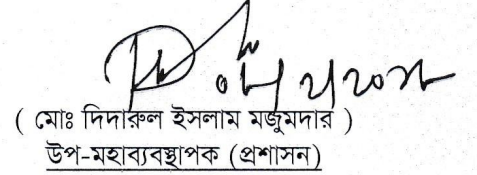 ( মোঃ দিদারুল ইসলাম মজুমদার )
উপ-মহাব্যবস্থাপক (প্রশাসন)